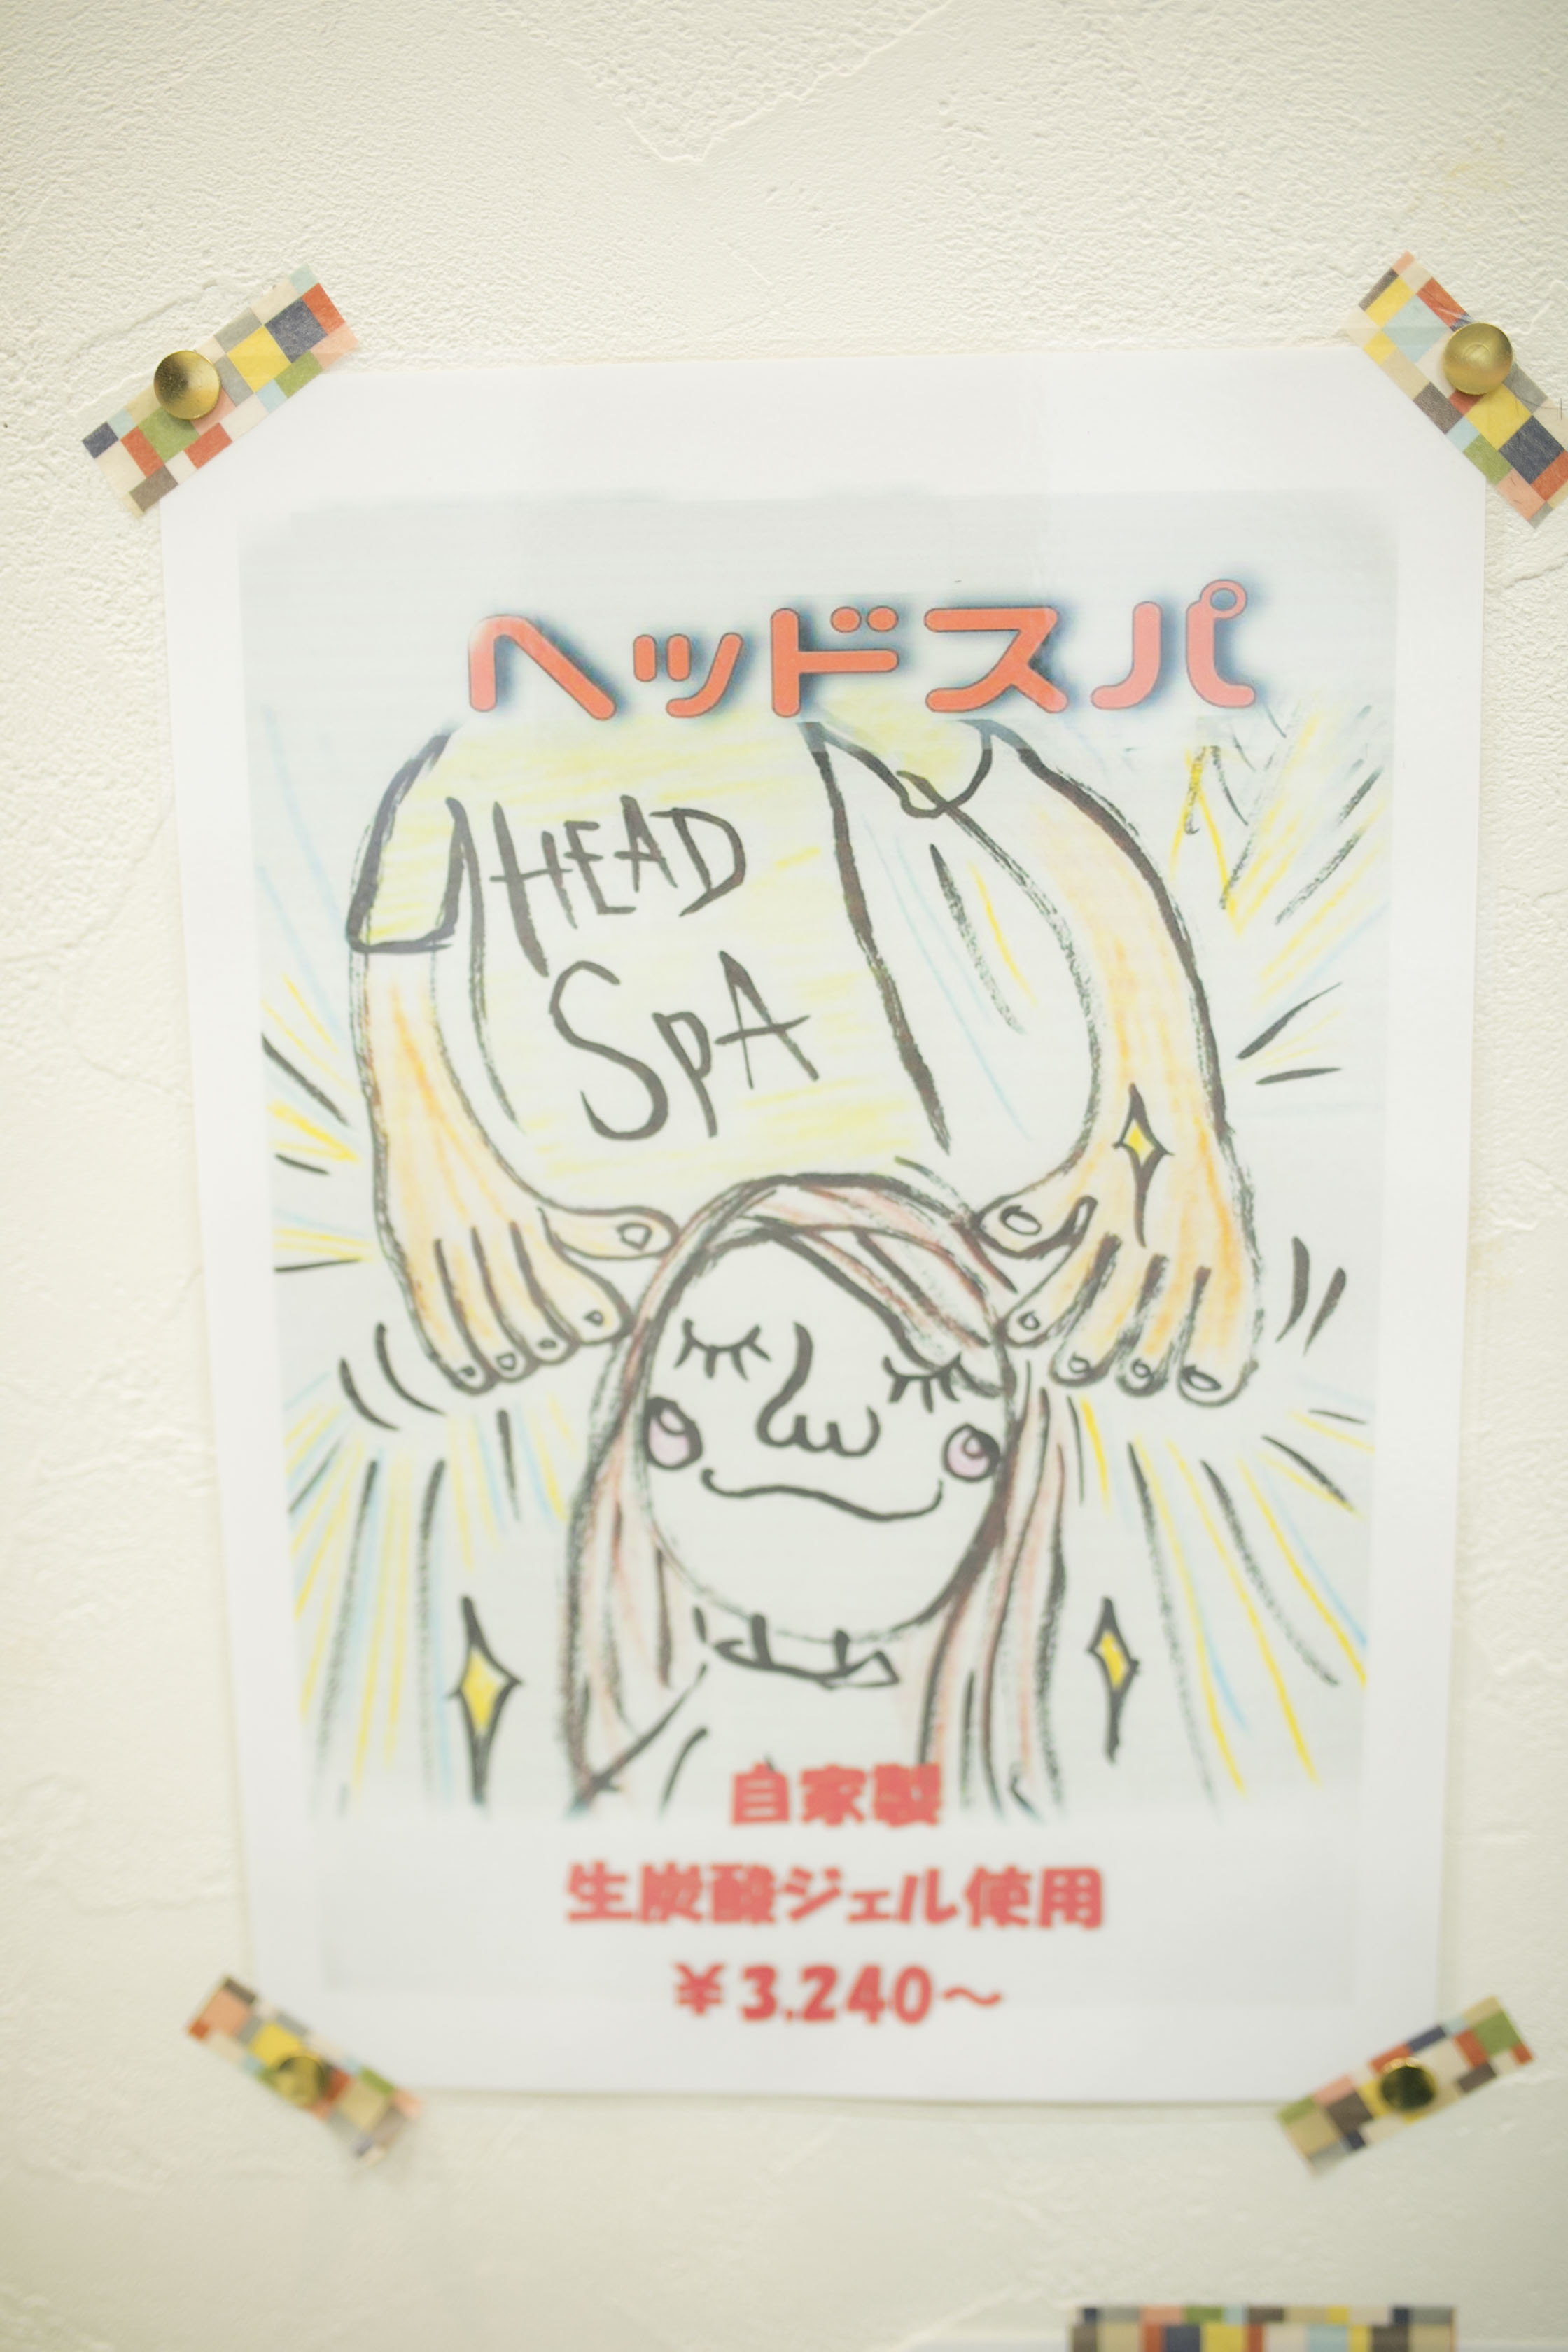 ヘッドスパ
HEAD
SpA
自家製
生炭酸ジェル使用
¥3.240〜